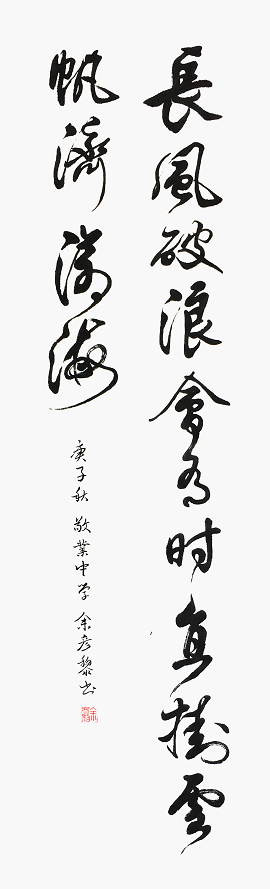 長風破浪會有时直掛雲
帆濟滄海
庚子秋 敬業中学 余彦黎书